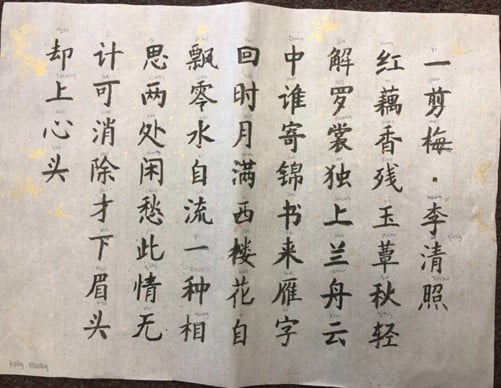 一剪梅·李清照
红藕香残玉蕈秋轻
解罗裳独上兰舟云
中谁寄锦书来雁字
回时月满西楼花自
飘零水自流一种相
思两处闲愁此情无
计可消除才下眉头
却上心头